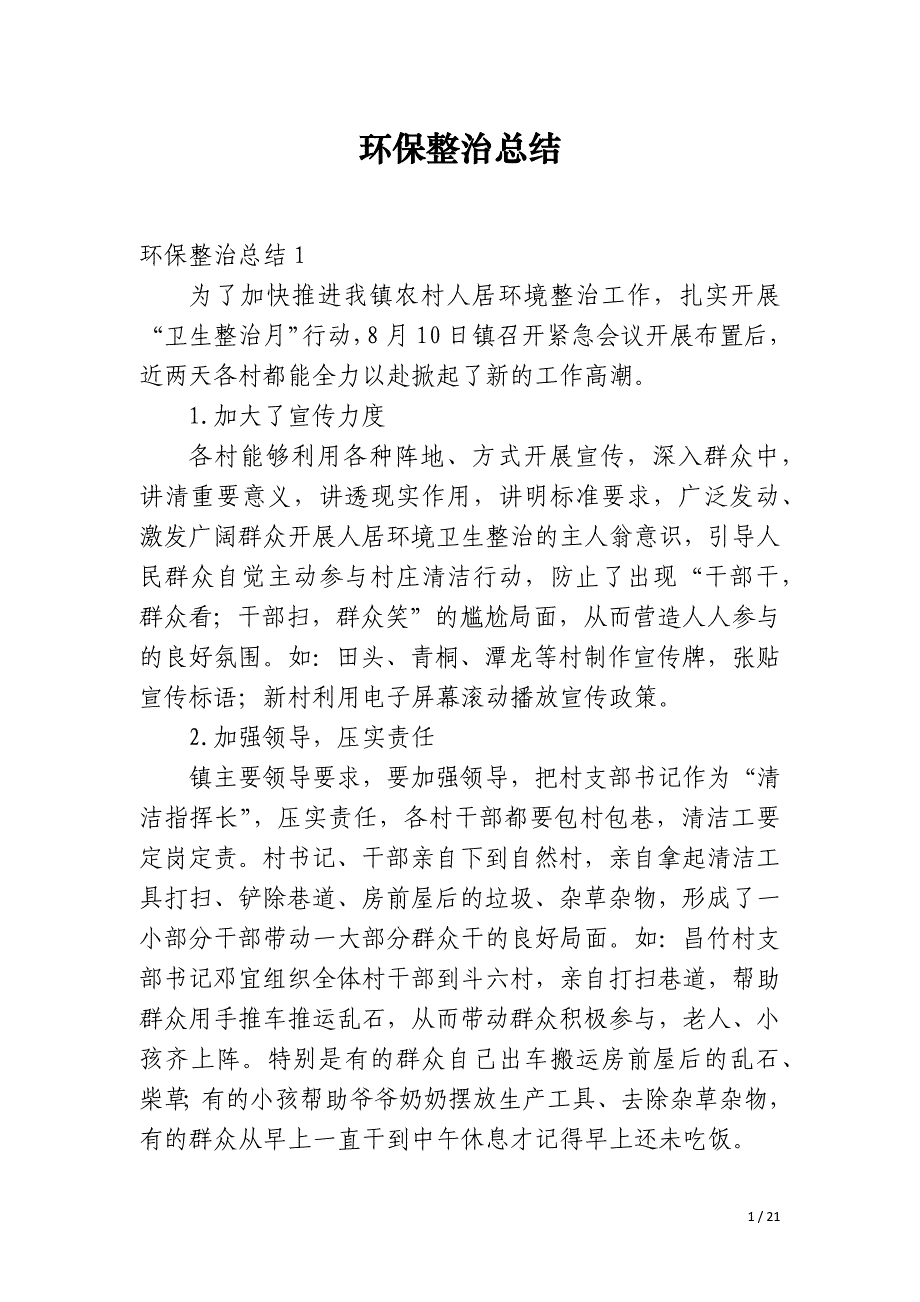 环保整治总结
环保整治总结1
为了加快推进我镇农村人居环境整治工作，扎实开展
“卫生整治月”行动，8月10日镇召开紧急会议开展布置后，
近两天各村都能全力以赴掀起了新的工作高潮。
1.加大了宣传力度
各村能够利用各种阵地、方式开展宣传，深入群众中，
讲清重要意义，讲透现实作用，讲明标准要求，广泛发动、
激发广阔群众开展人居环境卫生整治的主人翁意识，引导人
民群众自觉主动参与村庄清洁行动，防止了出现“干部干，
群众看；干部扫，群众笑”的尴尬局面，从而营造人人参与
的良好氛围。如：田头、青桐、潭龙等村制作宣传牌，张贴
宣传标语；新村利用电子屏幕滚动播放宣传政策。
2.加强领导，压实责任
镇主要领导要求，要加强领导，把村支部书记作为“清
洁指挥长”，压实责任，各村干部都要包村包巷，清洁工要
定岗定责。村书记、干部亲自下到自然村，亲自拿起清洁工
具打扫、铲除巷道、房前屋后的垃圾、杂草杂物，形成了一
小部分干部带动一大部分群众干的良好局面。如：昌竹村支
部书记邓宜组织全体村干部到斗六村，亲自打扫巷道，帮助
群众用手推车推运乱石，从而带动群众积极参与，老人、小
孩齐上阵。特别是有的群众自己出车搬运房前屋后的乱石、
柴草；有的小孩帮助爷爷奶奶摆放生产工具、去除杂草杂物，
有的群众从早上一直干到中午休息才记得早上还未吃饭。
1 / 21